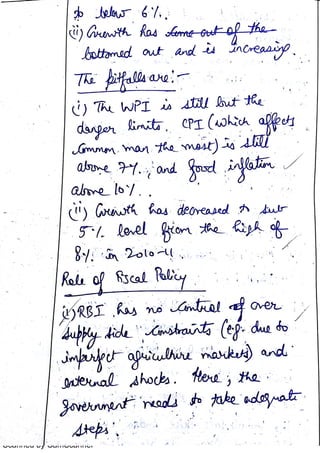 to below 6%.
(ii) Growth has come out of the
bottomed out and is increasing.
The pitfalls are:-
(i) The WPI is still but the
danger limits. CPI (which affects
common man the most) is still
above 7%, and food inflation
above 10%.
(ii) Growth has decreased to sub
5% level from the high of
8% in 2010-11
Role of Fiscal Policy
(i) RBI has no control of over
supply side constraints (e.g. due to
imperfect agriculture markets) and
external shocks. Here, the
government needs to take adequate
steps.